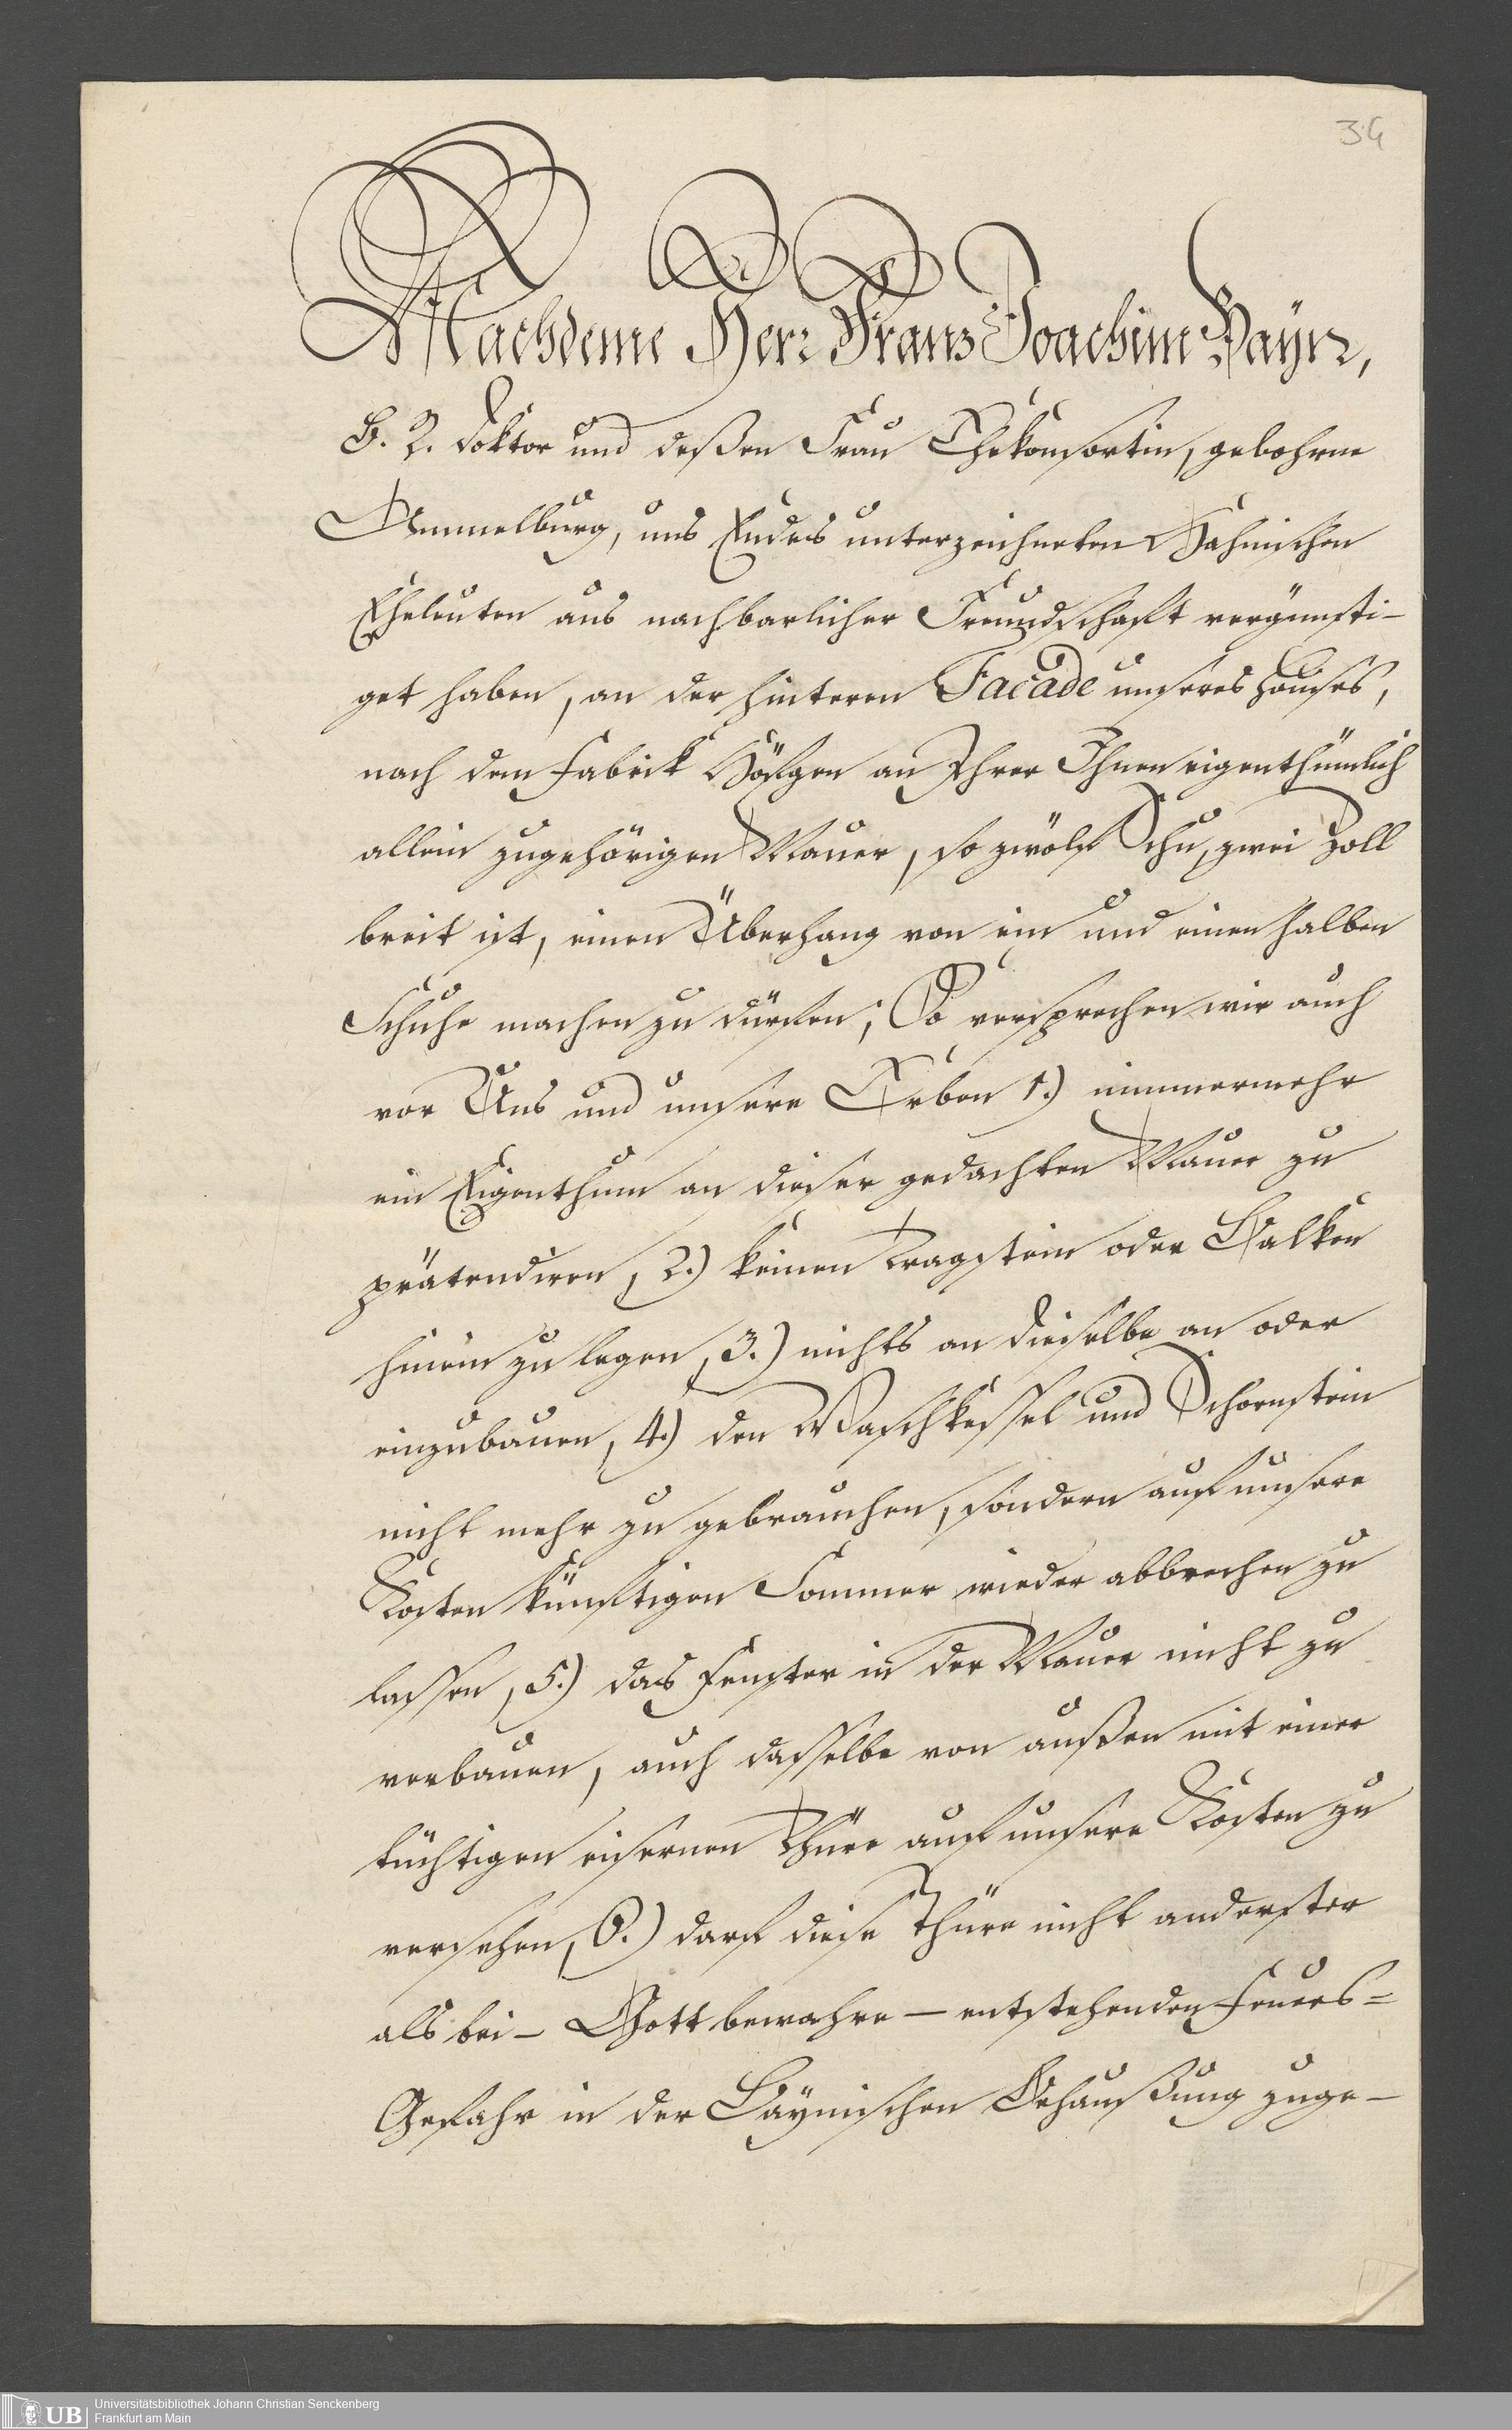 34
Nachdeme Herr Franz Joachim Bayn,
B. R. Doktor und deßen Frau Ehekonsortin, gebohrne
Ammelburg, uns Endes unterzeichneten Hahnischen
Eheleuten aus nachbarlicher Freundschaft vergünsti-
get haben, an der hinteren Facade unseres Hauses,
nach dem Fabrick Höfgen an Ihrer Ihnen eigenthümlich
allein zugehörigen Mauer, so zwölf Schu, zwei Zoll
breit ist, einen Überhang von ein und einen halben
Schuhe machen zu dürfen; So versprechen wir auch
vor Uns und unsere Erben 1.) nimmermehr
ein Eigenthum an dieser gedachten Mauer zu
prätendiren, 2.) keinen Tragstein oder Balken
hinein zu legen, 3.) nichts an dieselbe an oder
einzubauen, 4.) den Waschkessel und Schornstein
nicht mehr zu gebrauchen, sondern auf unsere
Kosten künftigen Sommer wieder abbrechen zu
lassen, 5.) das Fenster in der Mauer nicht zu
verbauen, auch dasselbe von außen mit einer
tüchtigen eisernen Thüre auf unsere Kosten zu
versehen, 6.) darf diese Thüre nicht anderster
als bei - Gott bewahre - entstehenden Feuers=
Gefahr in der Baynischen Behaußung zuge-
UB
Universitätsbibliothek Johann Christian Senckenberg
Frankfurt am Main